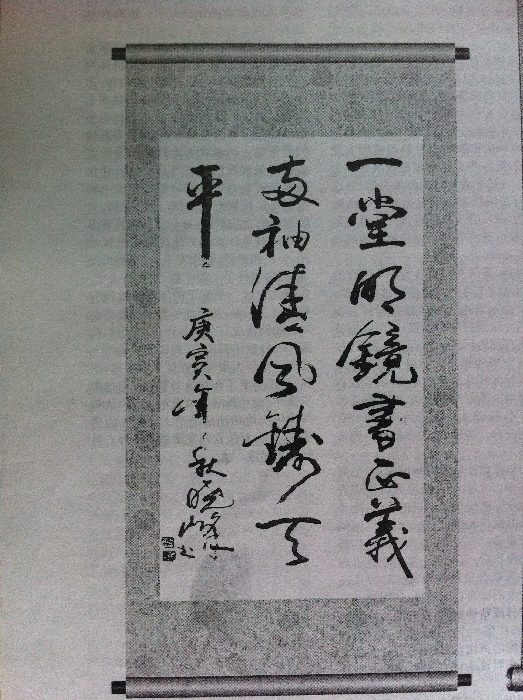 一堂明镜書正義
两袖清风鑄天
平
庚寅年秋晓峰书